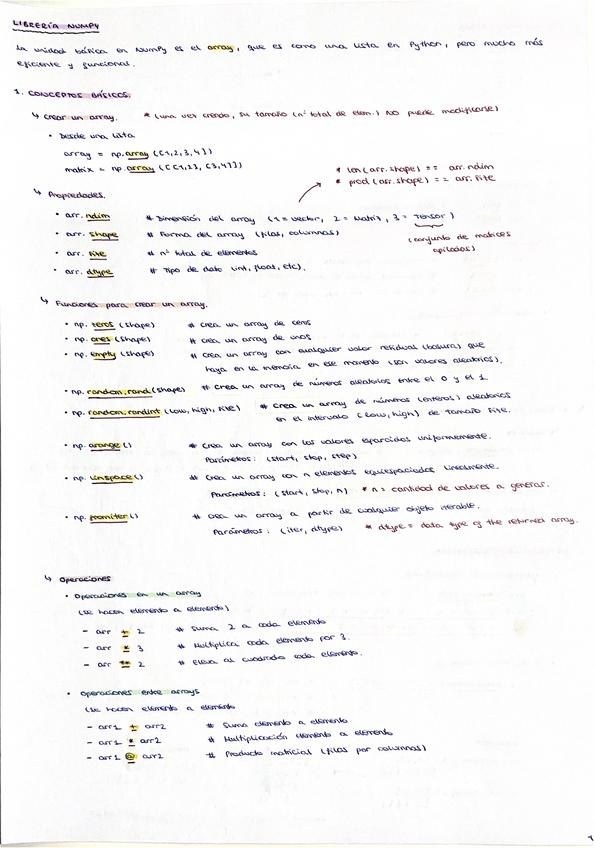 LIBRERÍA NUMPY
La unidad básica en NumPy es el array, que es como una lista en Python, pero mucho más
eficiente y funcional.
1. CONCEPTOS BÁSICOS.
↳ Crear un array. * (una vez creado, su tamaño (nº total de elem.) NO puede modificarse)
• Desde una lista
array = np.array([1,2,3,4])
matrix = np.array([[1,2], [3,4]])
* len(arr.shape) == arr.ndim
* prod(arr.shape) == arr.size
↳ Propiedades.
• arr. ndim # Dimensión del array (1 = vector, 2 = Matriz, 3 = Tensor)
• arr. shape # Forma del array (filas, columnas)
(conjunto de matrices
apiladas)
• arr. size # nº total de elementos
• arr. dtype # Tipo de dato (int, float, etc).
↳ Funciones para crear un array.
• np. zeros (shape) # Crea un array de ceros
• np. ones (shape) # crea un array de unos
• np. empty (shape) # Crea un array con cualquier valor residual (basura) que
haya en la memoria en ese momento (son valores aleatorios).
• np. random.rand (shape) # Crea un array de números aleatorios entre el 0 y el 1.
• np. random.randint (low, high, size) # Crea un array de números (enteros) aleatorios
en el intervalo (low, high) de tamaño size.
• np. arange () # Crea un array con los valores espaciados uniformemente.
Parámetros: (start, stop, step)
• np. linspace () # Crea un array con n elementos equiespaciados linealmente.
Parámetros: (start, stop, n) * n = cantidad de valores a generar.
• np. fromiter () # Crea un array a partir de cualquier objeto iterable.
Parámetros: (iter, dtype) * dtype = data type of the returned array.
↳ Operaciones
• Operaciones en un array
(se hacen elemento a elemento)
- arr + 2 # Suma 2 a cada elemento
- arr * 3 # Multiplica cada elemento por 3.
- arr ** 2 # Eleva al cuadrado cada elemento.
• Operaciones entre arrays
(se hacen elemento a elemento
- arr1 + arr2 # Suma elemento a elemento
- arr1 * arr2 # Multiplicación elemento a elemento
- arr1 @ arr2 # Producto matricial (filas por columnas)